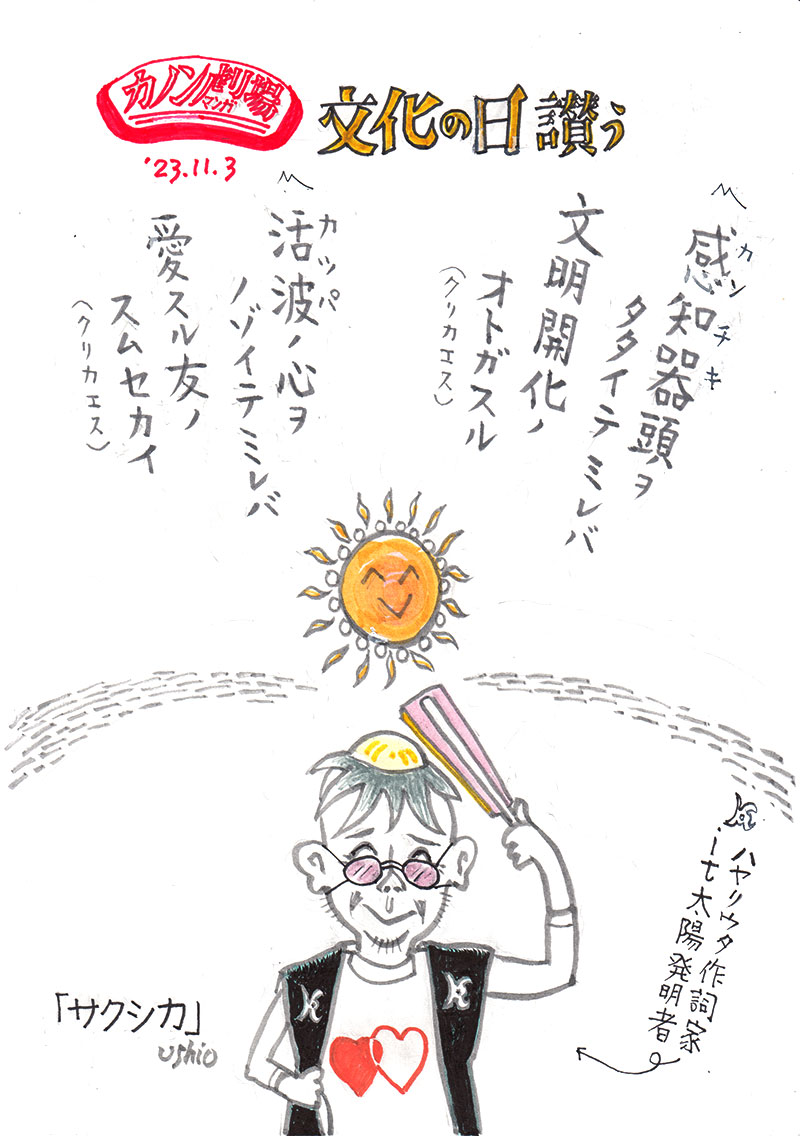 カノン劇場
マンガ
'23.11.3
文化の日讃う
感知器頭ヲ
カンチキ
タタイテミレバ
文明開化ノ
オトガスル
(クリカエス)
活波ノ心ヲ
カッパ
ノゾイテミレバ
愛スル友ノ
スムセカイ
(クリカエス)
ハヤリウタ作詞家
it太陽発明者
「サクシカ」
ushio